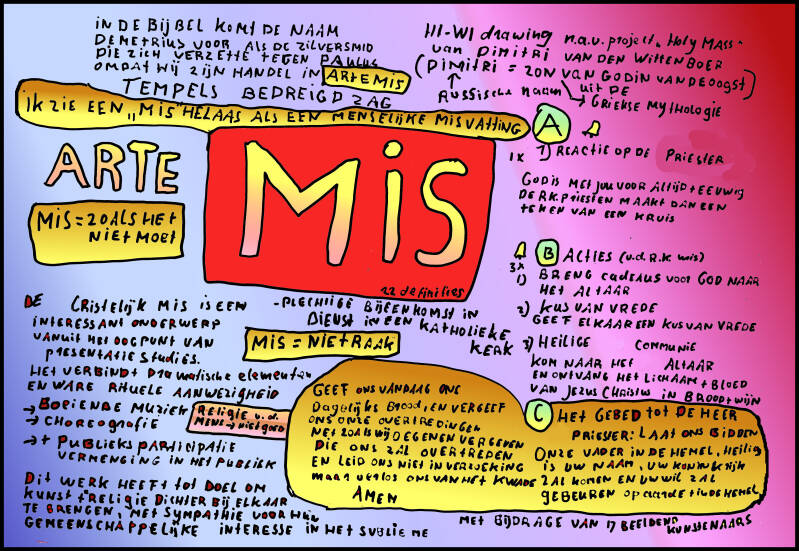 IN DE BIJBEL KOMT DE NAAM
DEMETRIUS VOOR ALS DE ZILVERSMID
DIE ZICH VERZETTE TEGEN PAULUS
OMDAT HIJ ZIJN HANDEL IN ARTEMIS
TEMPELS BEDREIGD ZAG
HI-WI drawing n.a.v. project "Holy Mass"
van DIMITRI VAN DEN WITTENBOER
(DIMITRI = ZON VAN GODIN VAN DE OOGST)
Russische naam UIT DE
GRIEKSE MYTHOLOGIE
IK ZIE EEN "MIS" HELAAS ALS EEN MENSELIJKE MISVATTING
ARTE
MIS
22 definities
MIS = ZOALS HET
NIET MOET
A
1x 1) REACTIE OP DE PRIESTER
GOD IS MET JOU VOOR ALTIJD + EEUWIG
DE R.K. PRIESTER MAAKT DAN EEN
TEKEN VAN EEN KRUIS
B ACTIES (v.d. R.K mis)
3x
1) BRENG cadeaus voor GOD NAAR
HET ALTAAR
2) KUS VAN VREDE
GEEF ELKAAR EEN KUS VAN VREDE
3) HEILIGE COMMUNIE
KOM NAAR HET ALTAAR
EN ONTVANG HET LICHAAM + BLOED
VAN JEZUS CHRISTUS IN BROOD + WIJN
- PLECHTIGE BIJEENKOMST IN
DIENST IN EEN KATHOLIEKE
KERK
MIS = NIET RAAK
DE CRISTELIJK MIS IS EEN
INTERESSANT ONDERWERP
VANUIT HET OOGPUNT VAN
PRESENTATIE STUDIES.
HET VERBINDT DRAMATISCHE ELEMENTEN
EN WARE RITUELE AANWEZIGHEID
→ BOEIENDE MUZIEK
→ CHOREOGRAFIE
→ + PUBLIEKSPARTICIPATIE
VERMENGING IN HET PUBLIEK
RELIGIE v.d.
MENS → niet goed
DIT WERK HEEFT TOT DOEL OM
KUNST + RELIGIE DICHTER BIJ ELKAAR
TE BRENGEN, MET SYMPATHIE VOOR HUN
GEMEENSCHAPPELIJKE INTERESSE IN HET SUBLIEME
C HET GEBED TOT DE HEER
PRIESTER: LAAT ONS BIDDEN
ONZE VADER IN DE HEMEL, HEILIG
IS UW NAAM, UW KONINKRIJK
ZAL KOMEN EN UW WIL ZAL
GEBEUREN OP AARDE + IN DE HEMEL
GEEF ONS VANDAAG ONS
DAGELIJKS BROOD, EN VERGEEF
ONS ONZE OVERTREDINGEN
NET ZOALS WIJ DEGENEN VERGEVEN
DIE ONS ZAL OVERTREDEN
EN LEID ONS NIET IN VERZOEKING
MAAR VERLOS ONS VAN HET KWADE
AMEN
MET BIJDRAGE VAN 17 BEELDEND KUNSTENAARS